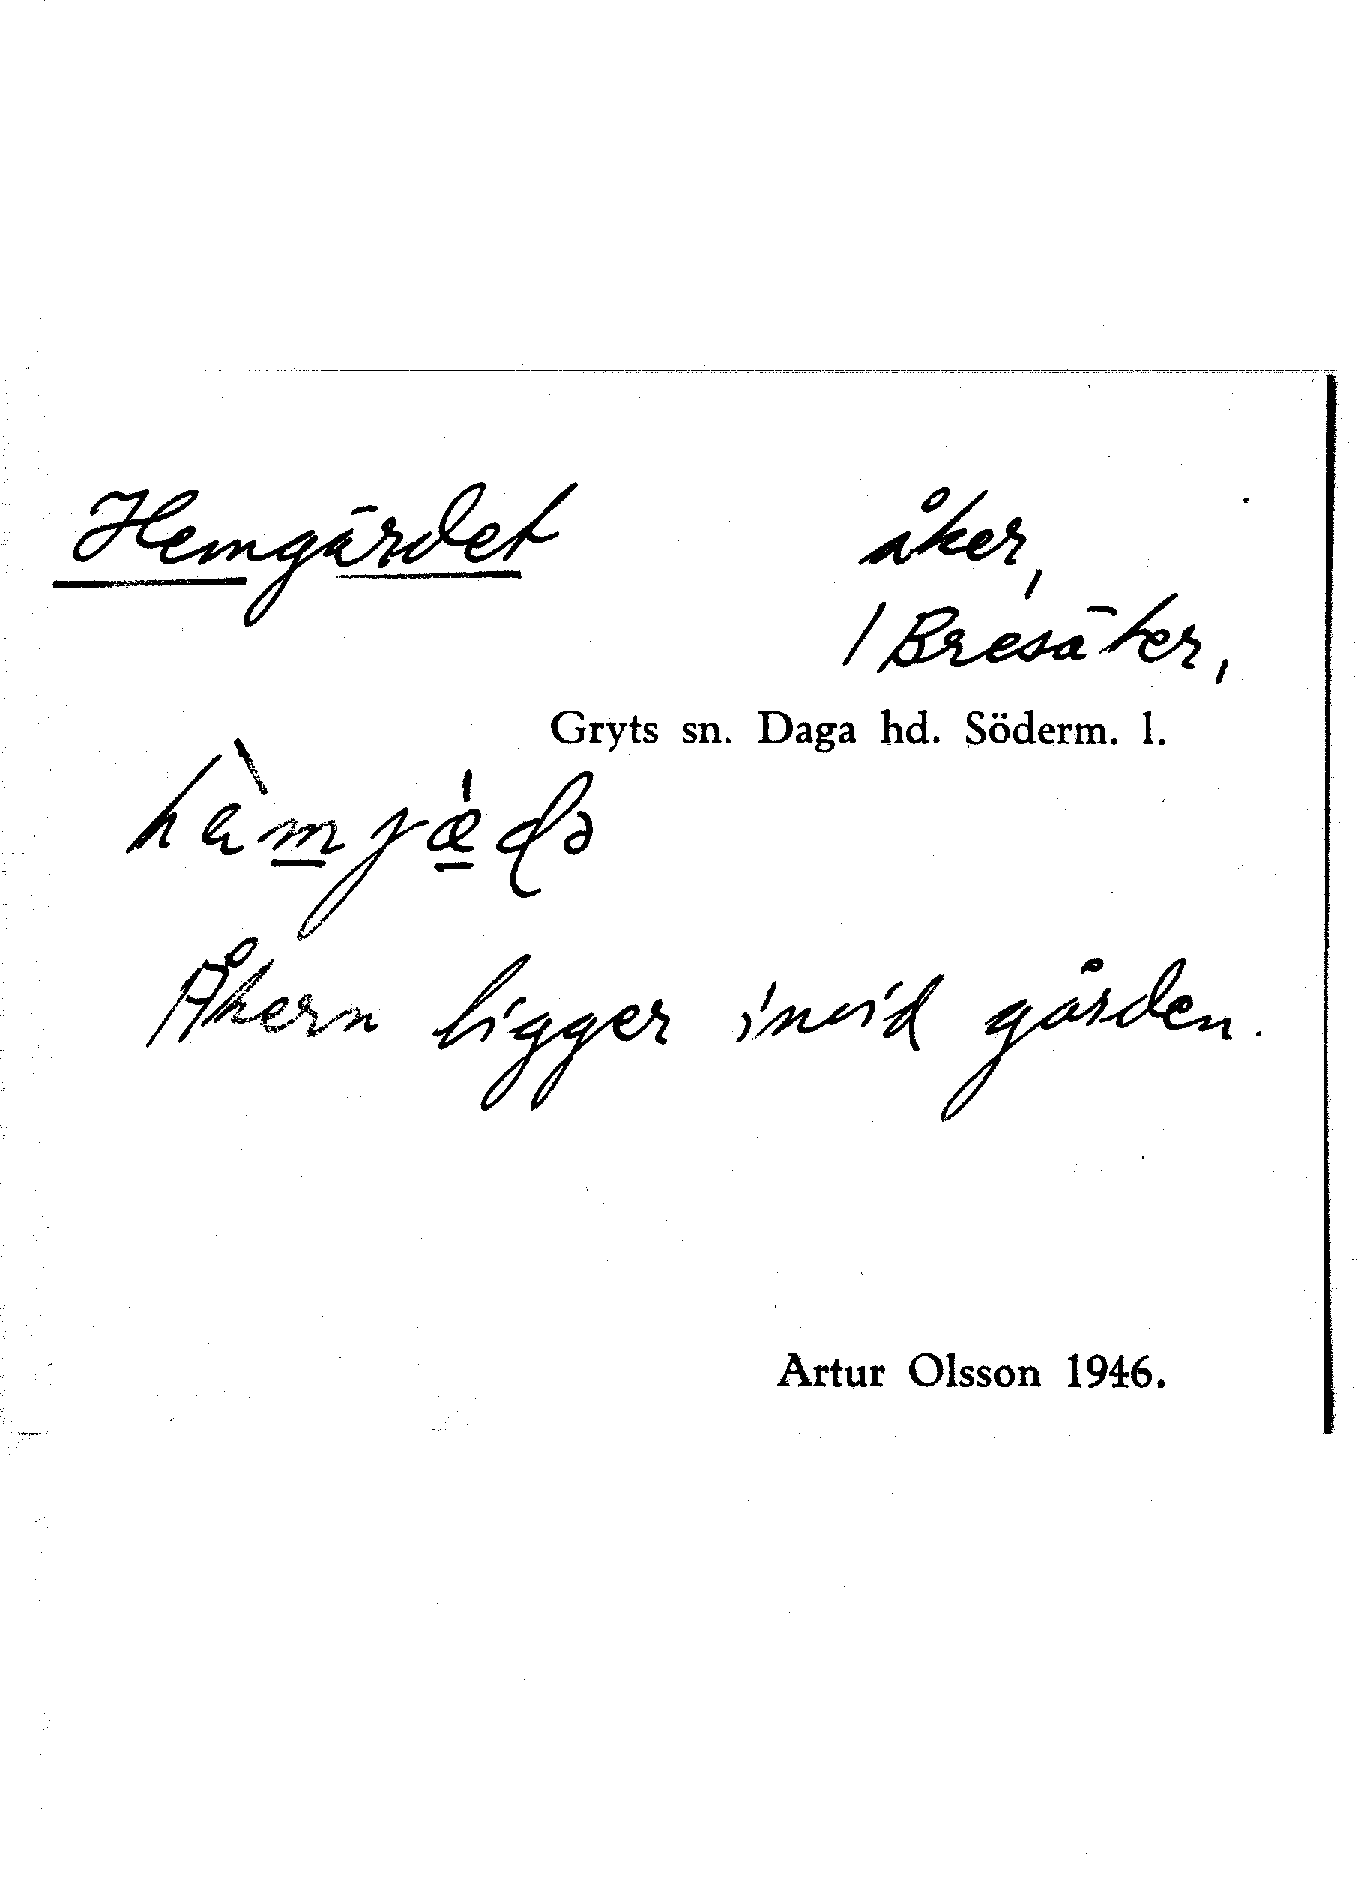 Hemgärdet åker,
/ Bresäter,
Gryts sn. Daga hd. Söderm. l.
hàmjæ̀ɖə
Åkern ligger invid gården.
Artur Olsson 1946.